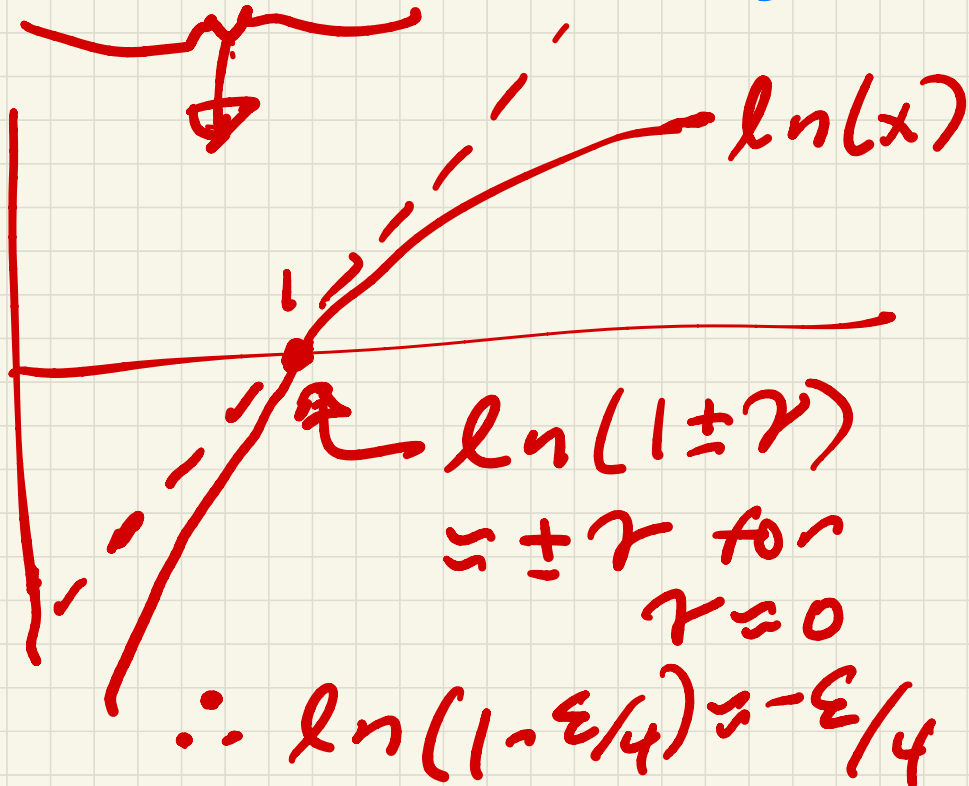 ln(x)
1
ln(1±r)
≈ ±r for
r≈0
∴ ln(1-ε/4)≈-ε/4